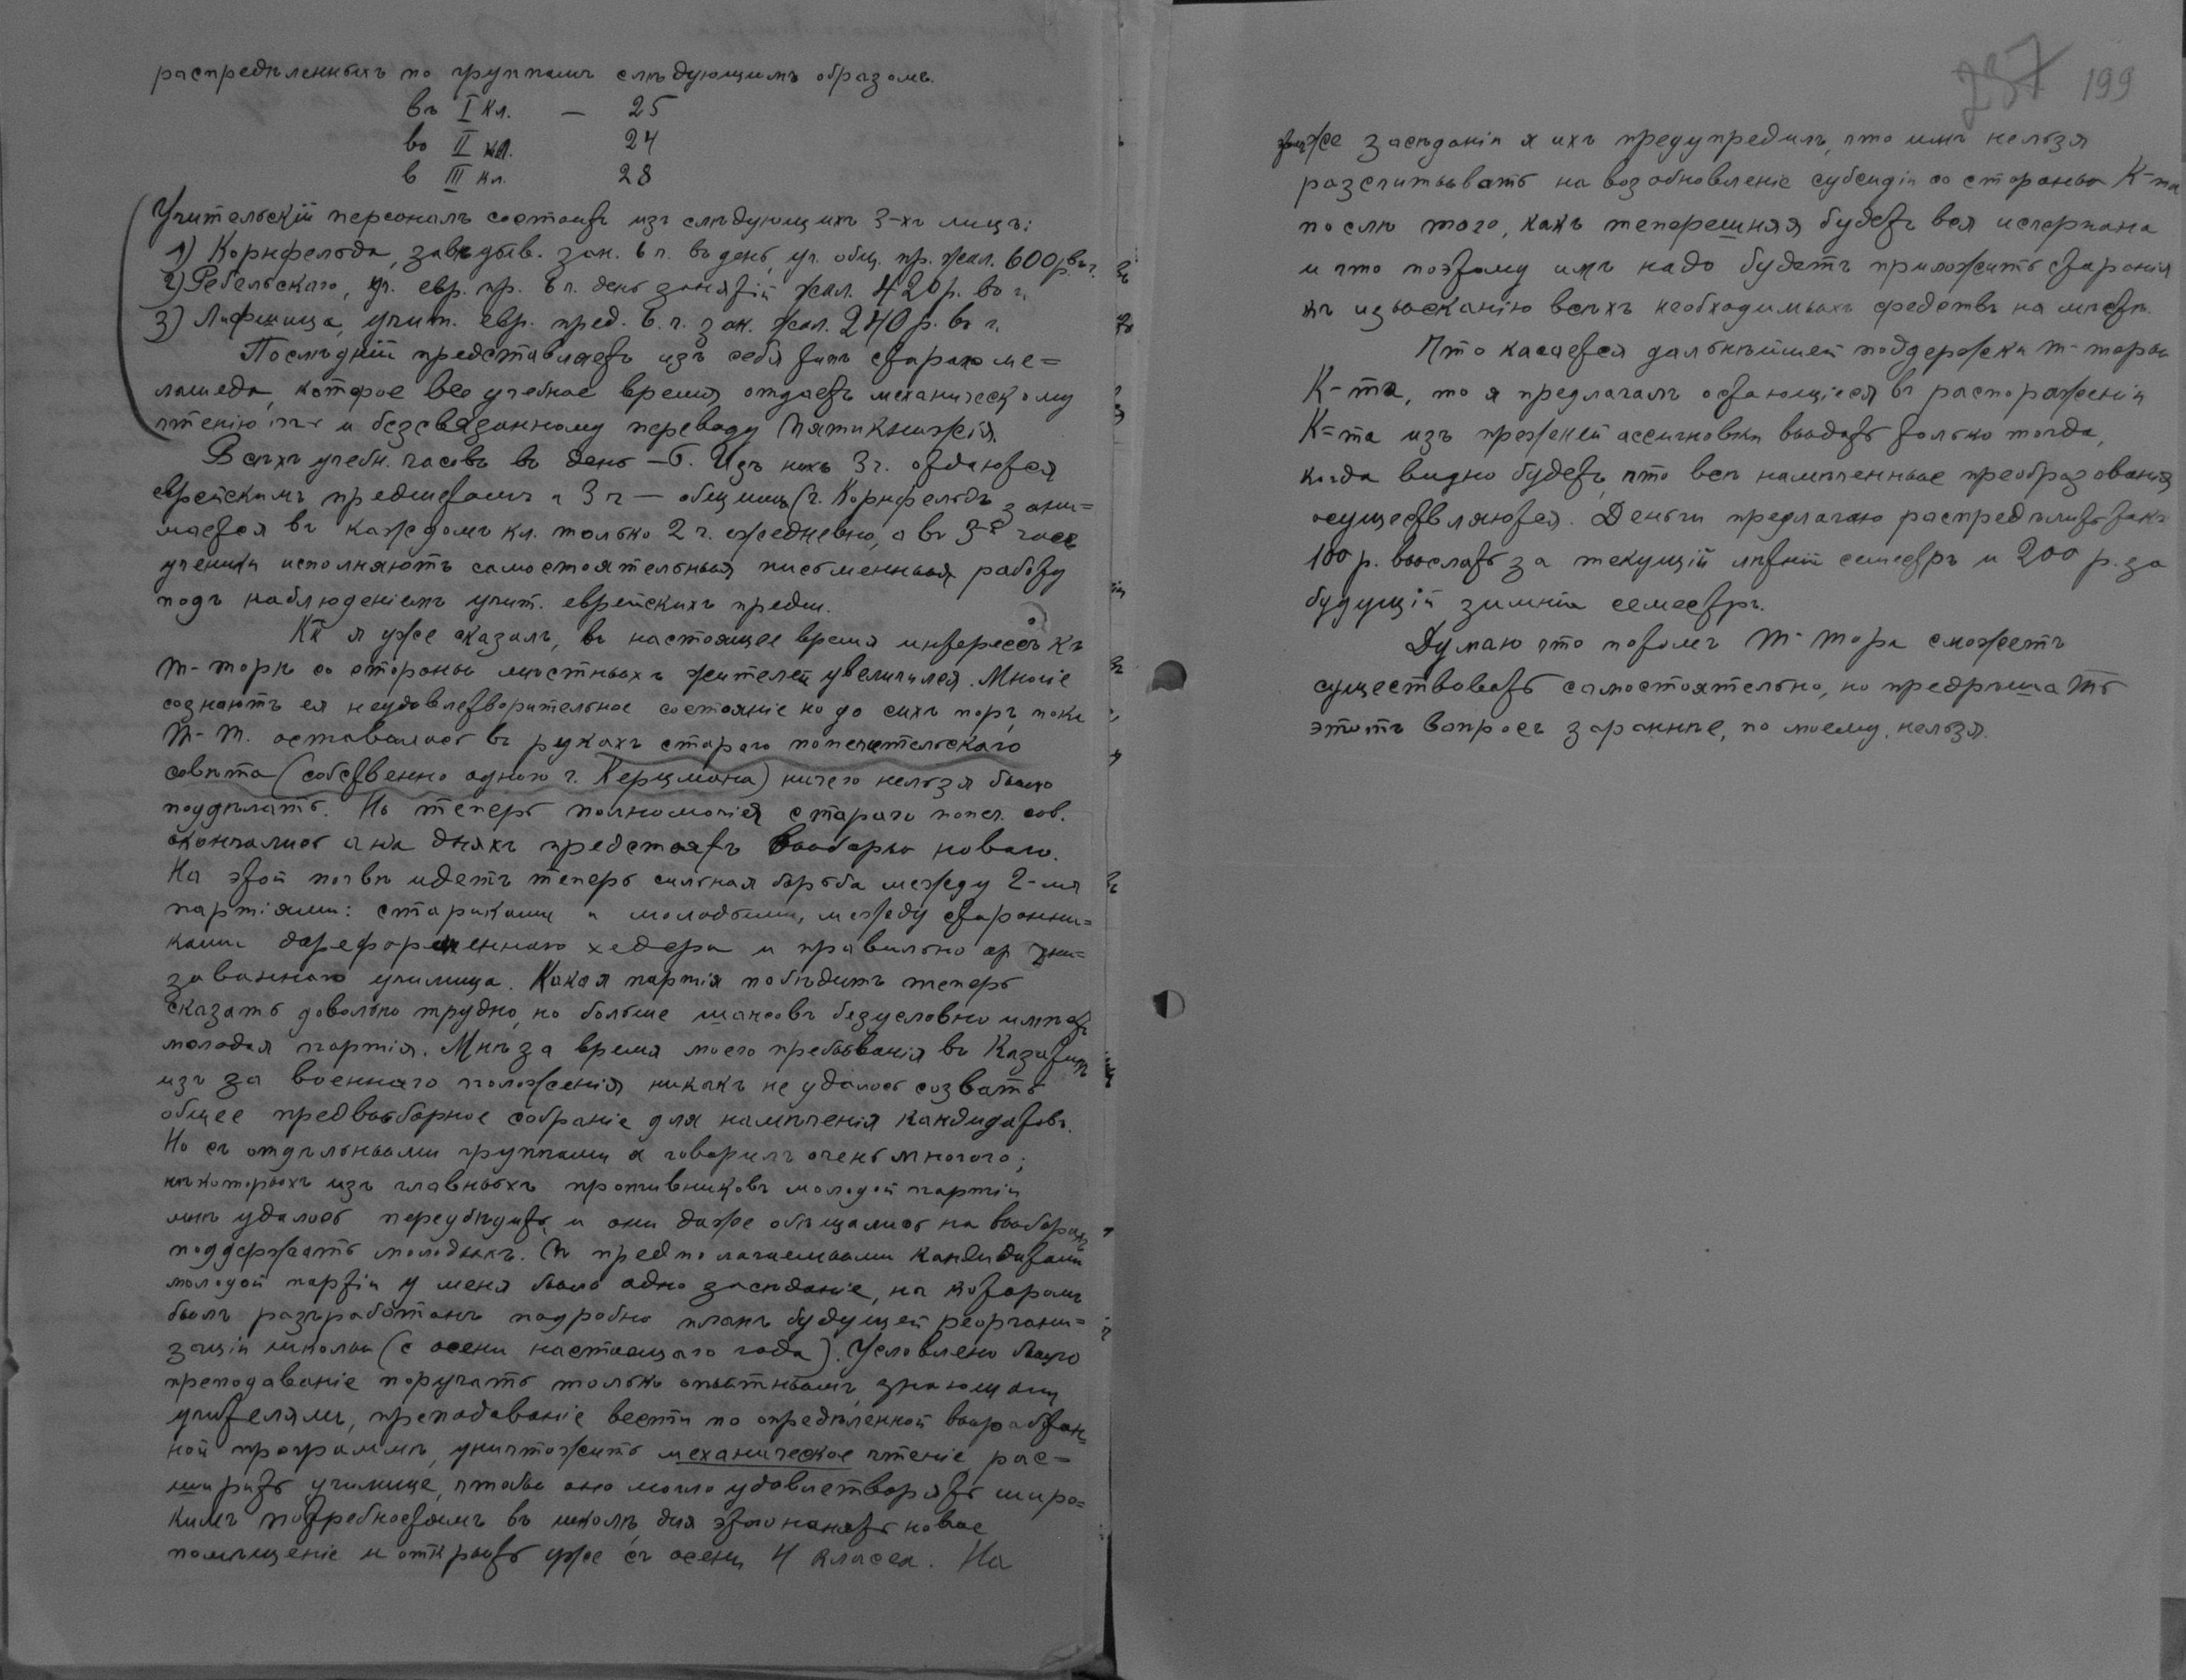 распредѣленныхъ по группамъ слѣдующимъ образомъ.
въ I кл. — 25
во II кл. 24
в III кл. 28
Учительскій персоналъ состоитъ изъ слѣдующихъ 3-хъ лицъ:
1) Корнфельда, завѣдыв. зан. 6 ч. въ день, уч. общ. пр. жал. 600 р. въ г.
2) Ребельскаго, уч. евр. пр. 6 ч. день занятій жал. 420 р. во г.
3) Лифшица, учит. евр. пред. 6. ч. зан. жал. 240 р. в г.
Послѣдній представляетъ изъ себя типъ стараго ме=
ламеда, которое все учебное время, отдаетъ механическому
чтенію и безсвязанному переводу Пятикнижія.
Всѣхъ учебн. часовъ въ день — 6. Изъ нихъ 3 ч. отдаются
еврейскимъ предметамъ и 3 ч — общимъ (г. Корнфельдъ зани=
мается въ каждомъ кл. только 2 ч. ежедневно, а въ 3-й часъ
ученики исполняютъ самостоятельныя письменныя работу
подъ наблюденіемъ учит. еврейскихъ предм.
Кк я уже сказалъ, въ настоящее время интересъ къ
Т-торѣ со стороны мѣстныхъ жителей увеличился. Многіе
сознаютъ ея неудовлетворительное состояніе но до сихъ поръ, пока
Т-Т. оставалось въ рукахъ стараго попечительскаго
совѣта (собственно одного г. Керцмана) ничего нельзя было
подѣлать. Но теперь полномочія стараго попеч. сов.
скончались а на дняхъ предстоятъ выборы новаго.
На этой почвѣ идетъ теперь сильная борьба между 2-мя
партіями: стариками и молодыми, между сторонни=
ками дореформеннаго хедера и правильно органи=
зованнаго училища. Какая партія побѣдитъ теперь
сказать довольно трудно, но больше шансовъ безусловно имѣетъ
молодая партія. Мнѣ за время моего пребыванія въ Казатинѣ
изъ за военнаго положенія никакъ не удалось созвать
общее предвыборное собраніе для намѣченія кандидатовъ.
Но съ отдѣльными группами я говорилъ очень много;
нѣкоторыхъ изъ главныхъ противниковъ молодой партіи
мнѣ удалось переубѣдить и они даже обѣщались на выборахъ
поддержать молодыхъ. Съ предполагаемыми кандидатами
молодой партіи у меня было одно засѣданіе, на которомъ
былъ разъработанъ подробно планъ будущей реоргани=
заціи школы (с осени настоящаго года). Условлено было
преподаваніе поручать только опытнымъ, знающимъ
учителямъ, преподаваніе вести по опредѣленной выработан=
ной программѣ, уничтожить механическое чтеніе, рас=
ширить училище, чтобы оно могло удовлетворять широ=
кимъ потребностямъ въ школѣ, для этого нанять новое
помѣщеніе и открыть уже съ осени 4 класса. На
237 199
же засѣданіи я ихъ предупредилъ, что имъ нельзя
разсчитывать на возобновленіе субсидіи со стороны К-та
послѣ того, какъ теперешняя будетъ вся исчерпана
и что поэтому имъ надо будетъ приложить старанія
къ изысканію всѣхъ необходимыхъ средствъ на мѣстѣ.
Что касается дальнѣйшей поддержки Т-торы
К-та, то я предлагалъ остающіеся въ распоряженіи
К=та изъ прежней ассигновки выдать только тогда,
когда видно будетъ, что всѣ намѣченные преобразованія
осуществляются. Деньги предлагаю распредѣлить такъ
100 р. выслать за текущій лѣтній семестръ и 200 р. за
будущій зимній семестръ.
Думаю что потомъ Т-Тора сможетъ
существовать самостоятельно, но предрѣшать
этотъ вопросъ заранѣе, по моему, нельзя.